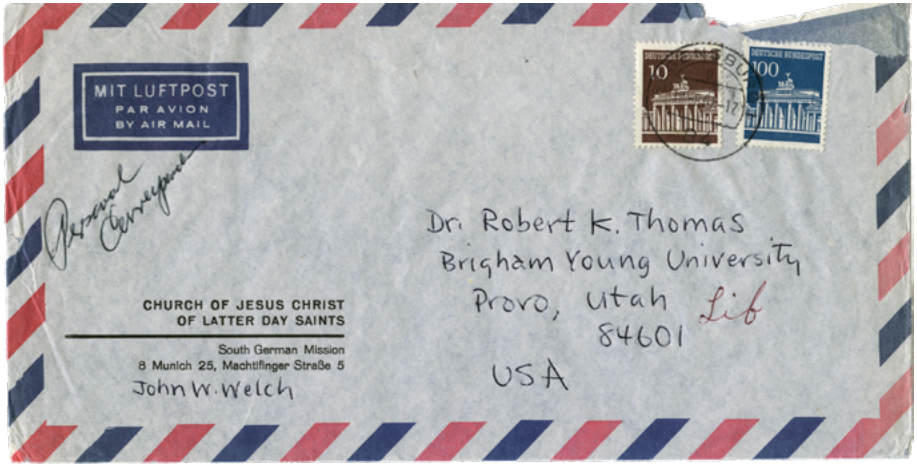 MIT LUFTPOST
PAR AVION
BY AIR MAIL
10
DEUTSCHE BUNDESPOST
100
Personal
CHURCH OF JESUS CHRIST
OF LATTER DAY SAINTS
South German Mission
8 Munich 25, Machtlfinger Straße 5
John W. Welch
Dr. Robert K. Thomas
Brigham Young University
Provo, Utah
84601
USA
Lib